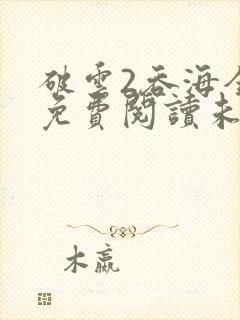 破雲2吞海全
免費閱讀未
木蠃